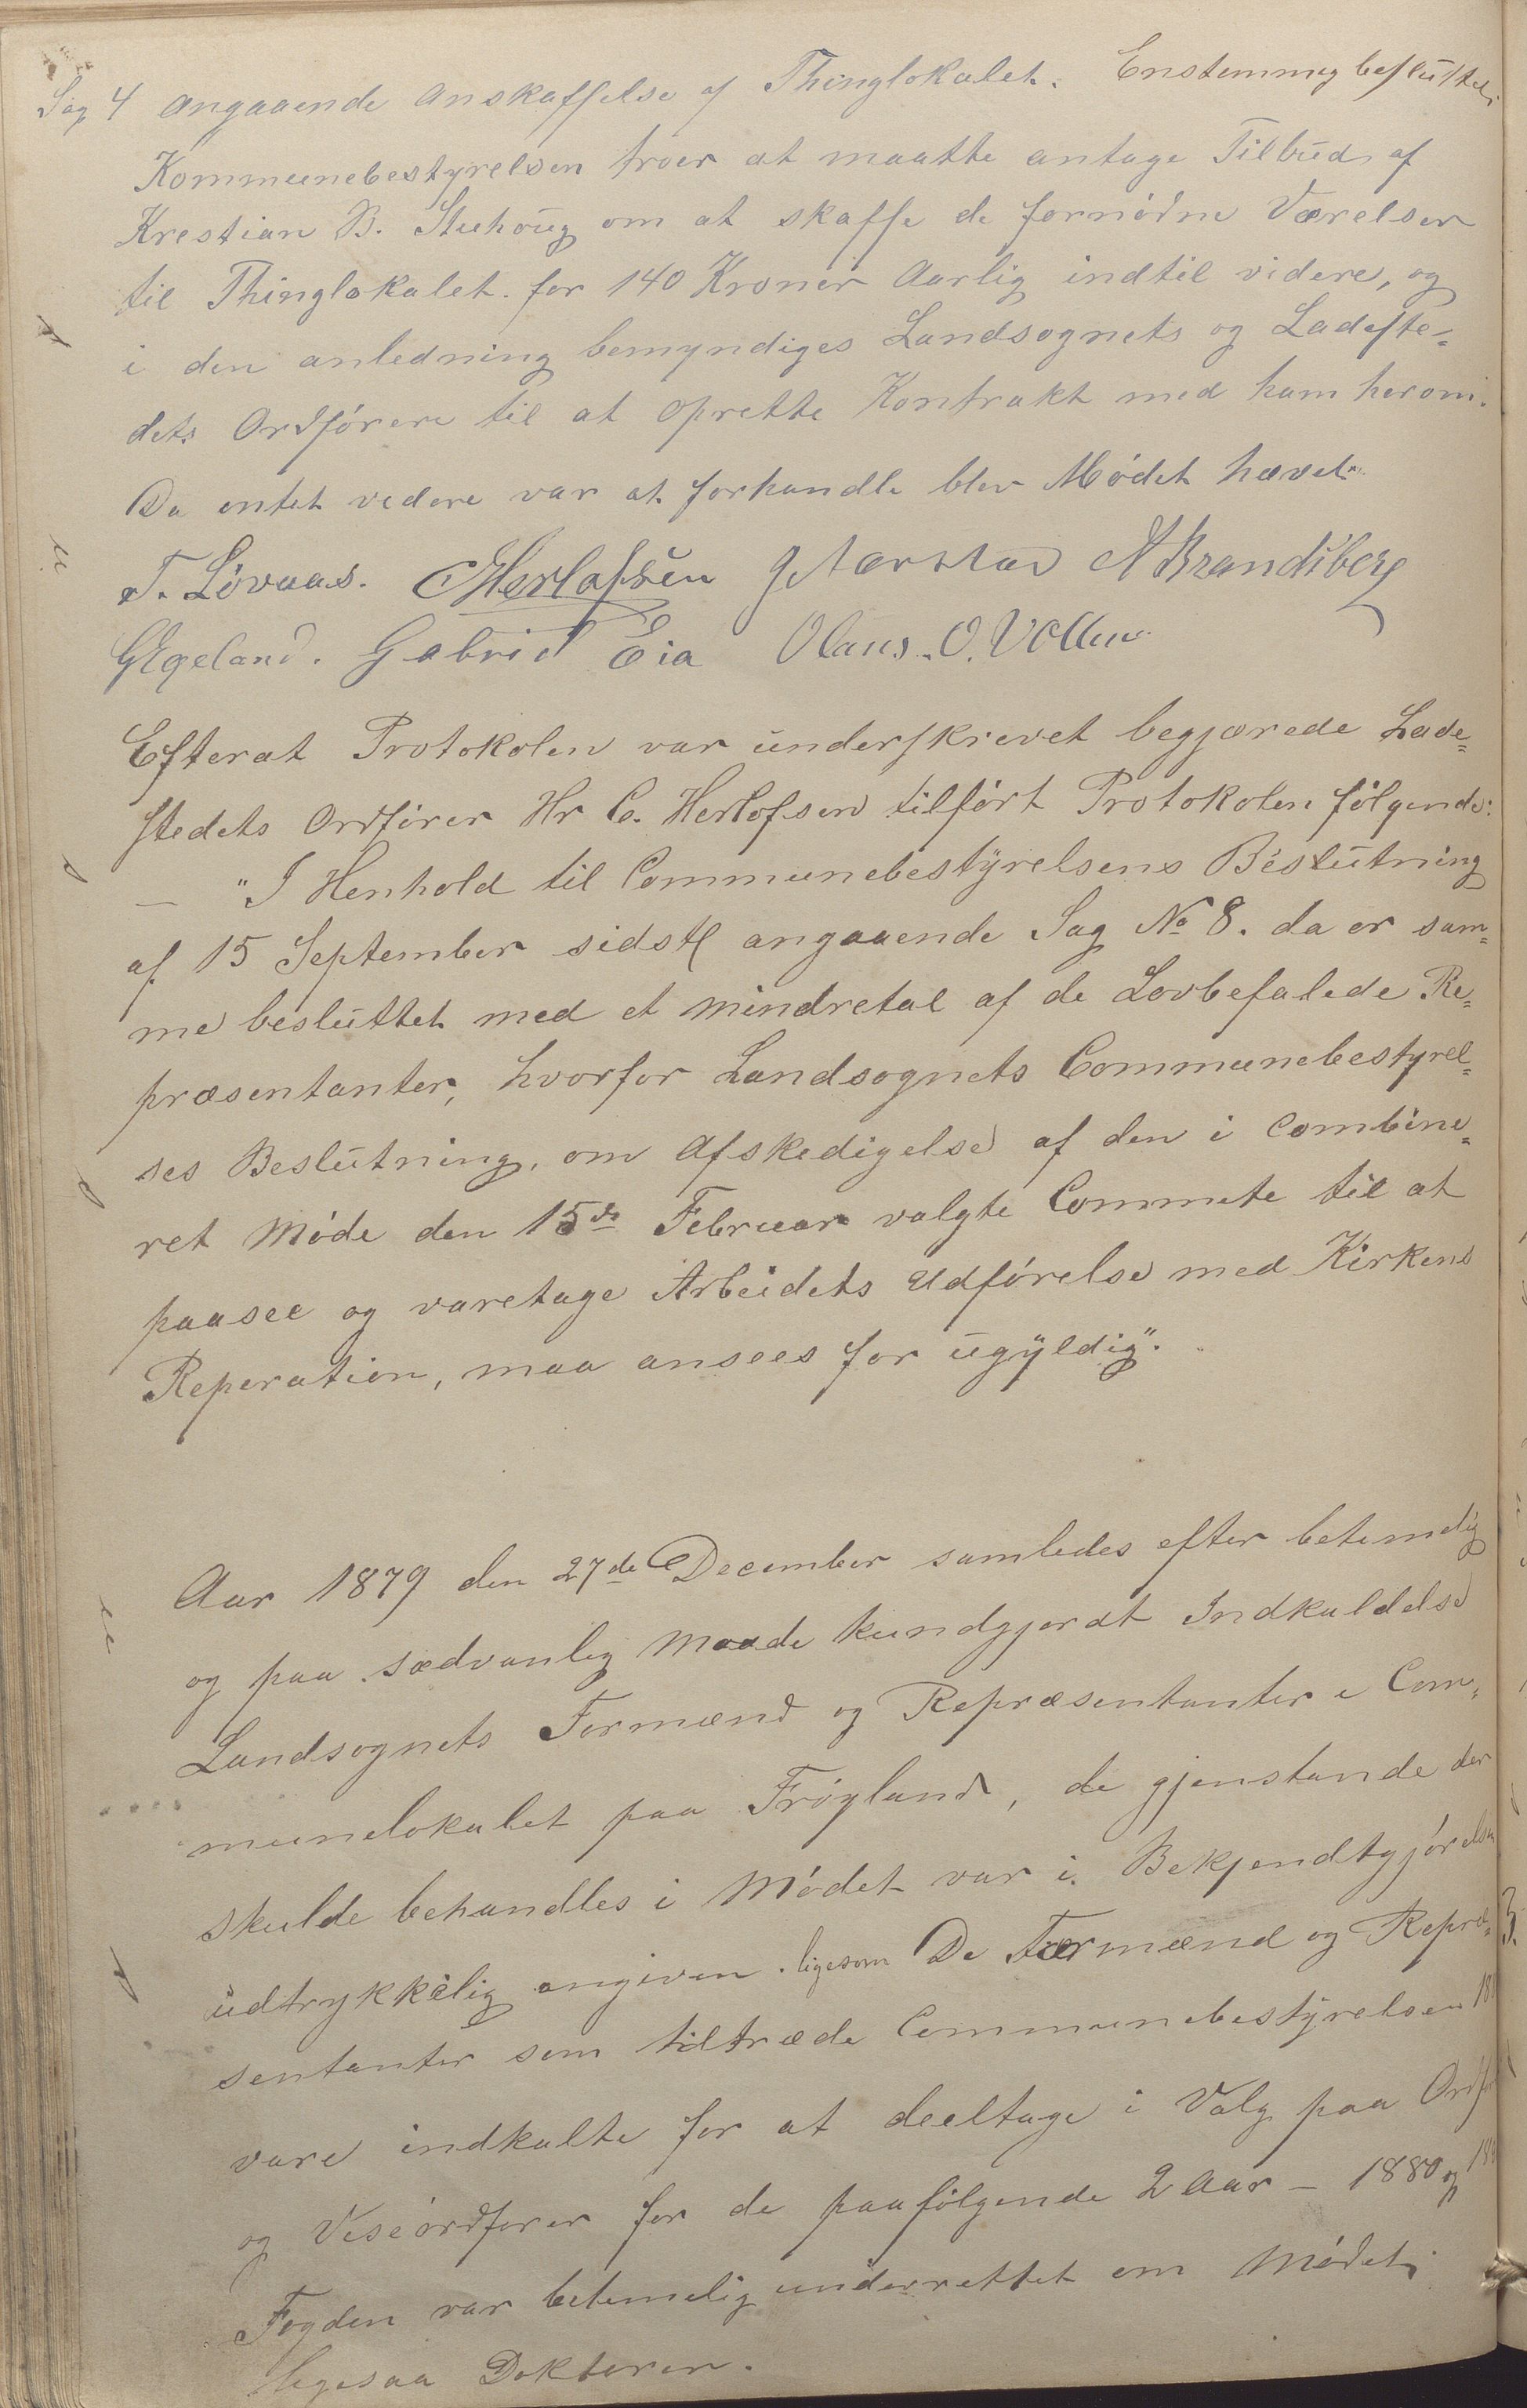 Sag 4 angaaende Anskaffelse af Thinglokalet. Enstemmig besluttet,
Kommunebestyrelsen troer at maatte antage Tilbud af
Krestian B. Stuhoug om at skaffe de fornödne Værelser
til Thinglokalet for 140 Kroner Aarlig indtil videre, og
i den anledning bemyndiges Landsognets og Ladeste=
dets Ordförere til at oprette Kontrakt med ham herom.
Da entet videre var at forhandle blev Mödet hævet.
T. Lövaas. CHerlofsen A Brandsberg
GEgeland. Gabriel Eia Olaus. O. Vollen
Efterat Protokolen var underskrevet begjærede Lade=
stedets Ordförer Hr C. Herlofsen tilfört Protokolen fölgende:
— "I Henhold til Communebestyrelsens Beslutning
af 15 September sidstl angaaende Sag No 8. da er sam=
me besluttet med et mindretal af de Lovbefalede Re=
præsentanter, hvorfor Landsognets Communebestyrel=
ses Beslutning, om Afskedigelse af den i Combine=
ret Möde den 15de Februar valgte Commete til at
paasee og varetage Arbeidets Udförelse med Kirkens
Reperation, maa ansees for ugyldig".
Aar 1879 den 27de December samledes efter betimelig
og paa sædvanlig Maade kundgjordt Indkaldelse
Landsognets Formænd og Repræsentanter i Com=
munelokalet paa Fröyland, de gjenstande der
skulde behandles i Mödet var i Bekjendtgjörelsen
udtrykkelig angiven. ligesom De Formænd og Repræ=
sentanter som tiltræde Communebestyrelsen
vare indkalte for at deeltage i Valg paa
og Viseordförer for de paafölgende 2 Aar — 1880 og
Fogden var betimelig underrettet om Mödet,
ligesaa Doktoren.